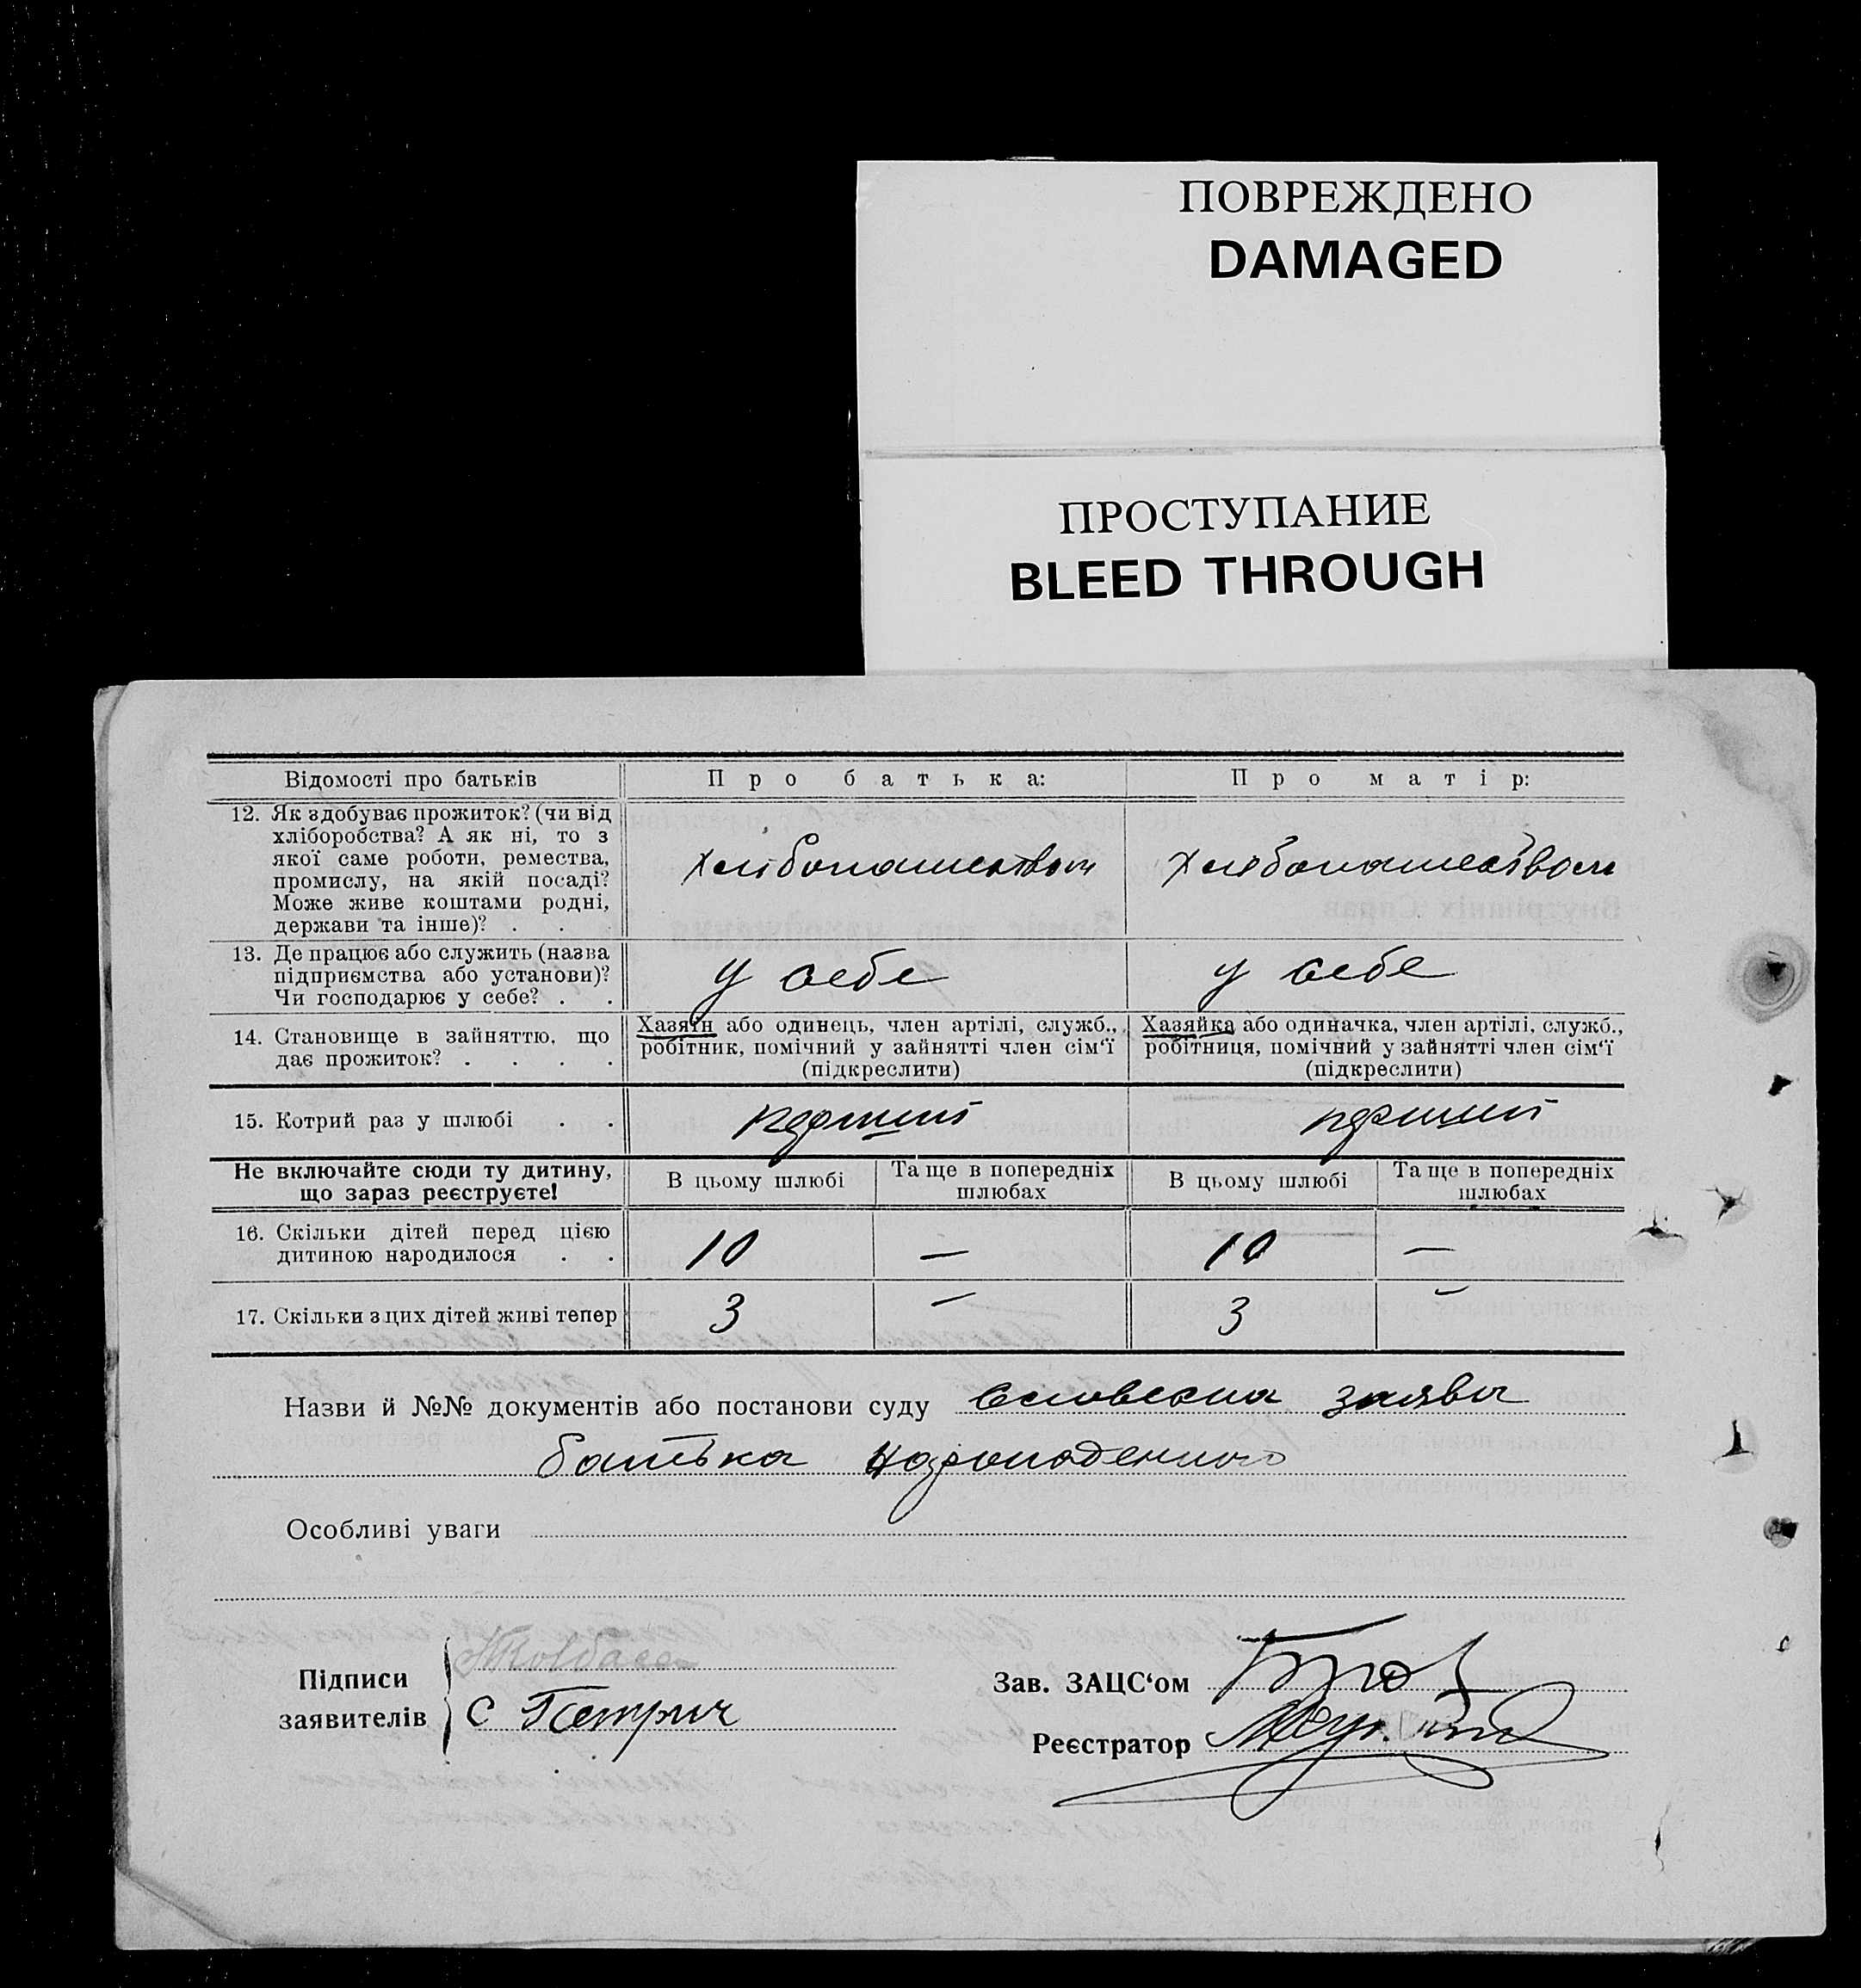 ПОВРЕЖДЕНО
DAMAGED
ПРОСТУПАНИЕ
BLEED THROUGH
Відомості про батьків
Про батька:
Про матір:
12. Як здобуває прожиток? (чи від
хліборобства? А як ні, то з
якої саме роботи, ремества,
промислу, на якій посаді?
Може живе коштами родні,
держави та інше)? . .
хлібопашеством
хлібопашеством
13. Де працює або служить (назва
підприємства або установи)?
Чи господарює у себе? . .
у себе
у себе
14. Становище в зайняттю, що
дає прожиток? . . . .
Хазяїн або одинець, член артілі, служб.,
робітник, помічний у зайнятті член сім‘ї
(підкреслити)
Хазяйка або одиначка, член артілі, служб.,
робітниця, помічний у зайнятті член сім‘ї
(підкреслити)
15. Котрий раз у шлюбі . .
перший
перший
Не включайте сюди ту дитину,
що зараз реєструєте!
В цьому шлюбі
Та ще в попередніх
шлюбах
В цьому шлюбі
Та ще в попередніх
шлюбах
16. Скільки дітей перед цією
дитиною народилося . .
10
—
10
—
17. Скільки з цих дітей живі тепер
3
—
3
—
Назви й №№ документів або постанови суду словесна заява
батька
Особливі уваги
Підписи
заявителів
С Петрич
Зав. ЗАЦС‘ом
Реєстратор